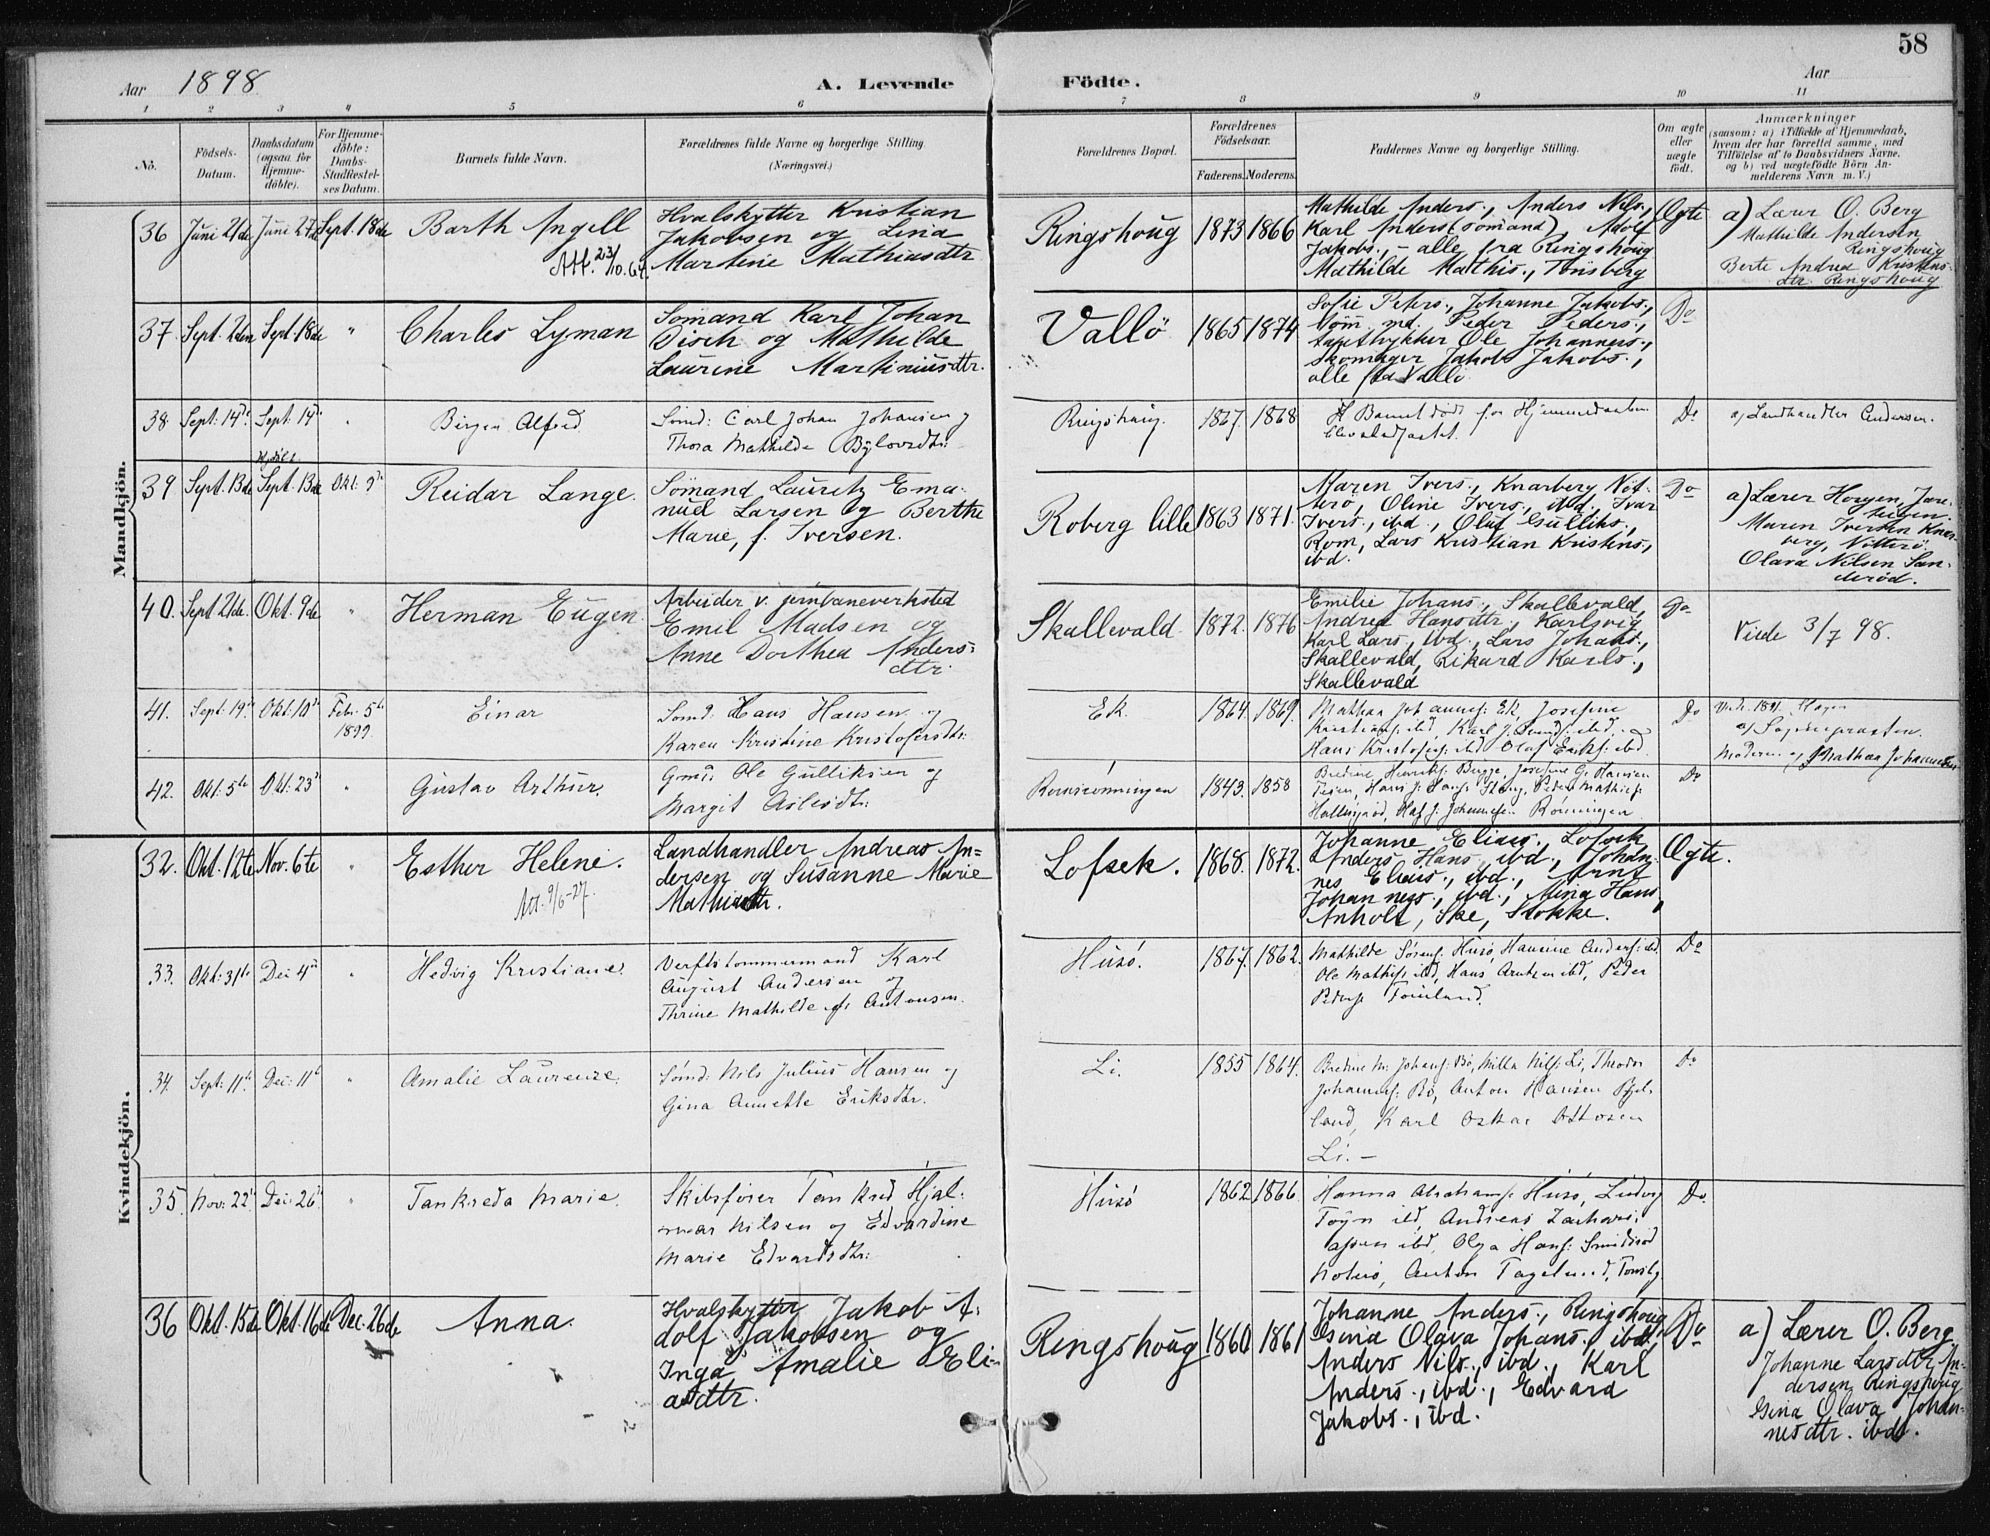 58
Aar 1898 A. Levende Födte. Aar
1 2 3 4 5 6 7 8 9 10 11
No.
Födsels-Datum.
Daabsdatum (ogsaa for Hjemme-döbte).
For Hjemme-döbte: Daabs-Stadfæstel-ses Datum.
Barnets fulde Navn.
Forældrenes fulde Navne og borgerlige Stilling
(Næringsvei.)
Forældrenes Bopæl.
Forældrenes Födselsaar.
Faderens. Moderens.
Faddernes Navne og borgerlige Stilling.
Om ægte eller uægte födt.
Anmærkninger
(saasom: a) i Tilfælde af Hjemmedaab,
hvem der har forrettet samme, med
Tilföielse af to Daabsvidners Navne,
og b) ved uægtefödte Börn An-
melderens Navn m. V.)
Mandkjön.
36 Juni 21de Juni 27de Sept. 18de Barth Angell
Att. 23/10.64.
Hvalskytter Kristian
Jakobsen og Lina
Martine Mathiasdtr
Ringshoug 1873 1866
Mathilde Anders., Anders Nils.,
Karl Anders (sömand), Adolf
Jakobs., - alle fra Ringshoug
Mathilde Mathis., Tönsberg
Ægte
a) Lærer O. Berg
Mathilde Andersen
Ringshoug
Berte Andrea Kristens-
dtr. Ringshoug
37 Sept. 2den Sept. 18de " Charles Lyman
Sömand Karl Johan
Disch og Mathilde
Laurine Martiniusdtr.
Vallö 1865 1874
Sofie Peters., Johanne Jakobs.,
Peder Peders.,
Ole Johannes.,
skomager Jakob Jakobs.,
alle fra Vallö
Do
38 Sept. 14de Sept. 14de " Birger Alfred
Sömd: Carl Johan Johansen og
Thora Mathilde
Ringshaug. 1867. 1868
Barnet döde för Hjemmedaaben
Do
a) Landhandler Andersen.
39 Sept. 13de Sept. 13de Okt: 9de Reidar Lange.
Sömand Lauritz Ema-
nuel Larsen og Berthe
Marie, f. Iversen.
Roberg lille 1863 1871
Maren Ivers., Knarberg Nöt-
terö, Oline Ivers., ibd., Ivar
Ivers., ibd., Oluf Gulliks.,
Rom, Lars Kristian Kristens.,
ibd.
Do
a) Lærer Horgen,
Maren Iversen Knar-
berg, Nötterö
Olava Nilsen San-
deröd.
40. Sept 21de. Okt. 9de " Herman Eugen
Arbeider v. jernbaneverksted
Emil Madsen og
Anne Dorthea Anders-
dtr.
Skallevald 1872. 1876
Emilie Johans., Skallevald,
Andrea Hansdtr., Karlsvig,
Karl Lars., ibd., Lars Johans.,
Skallevald, Rikard Karls.,
Skallevald
Do
Viede 3/7 98.
41. Sept. 19de Okt: 10de Febr: 5te
1899
Einar
Sömd. Hans Hansen og
Karen Kristine Kristofersdtr:
Ek. 1864. 1869.
Mathea Johannes: Ek, Josefine
Kristians: ibd, Karl J. ibd,
Hans Kristofers: ibd Olaf Eriks: ibd
Do
Moderen og Mathea Johannesen
42. Okt. 5te Okt. 23de " Gustav Arthur.
Grmd: Ole Gulliksen og
Margit Aslesdtr:
1843. 1858
Bredine Henriks: Bugge, Josefine G. Hansen
Rönningen
Do
Kvindekjön.
32. Okt. 12te Nov. 6te " Esther Helene.
Att. 9/6-27.
Landhandler Andreas An=
dersen og Susanne Marie
Mathiasdtr.
Lofsek. 1868. 1872.
Johanne Elias., Lofsek
Anders Hans., ibd., Johan-
nes Elias., ibd., Arnt
Johannes., ibd., Mina Hans,
Anholt, Ske, Stokke.
Ægte.
33. Okt: 31te Dec: 4de " Hedvig Kristiane.
Verftstömmermand Karl
August Andersen og
Thrine Mathilde f: Antonsen.
Husö. 1867. 1862.
Mathilde Sörens: Husö, Hansine Anders: ibd.
Ole Mathis: ibd, Hans Arntzen ibd, Peder
Peders:
Do
34. Sept: 11te Dec: 11te " Amalie Laurenze.
Sömd: Nils Julius Hansen og
Gina Annette Eriksdtr.
Li. 1855 1864.
Bredine M: Johans: Bö, Milla Nils: Li, Theodor
Johannes: Bö, Anton Hansen
land, Karl Oskar Ottosen
Li. -
Do
35. Nov: 22de Dec: 26de " Tankreda Marie
Skibsförer Tankred Hjal-
mar Nilsen og Edvardine
Marie Edvardsdtr:
Husö 1862 1866.
Hanna Abrahams: Husö, Ludvig
Foyn ibd, Andreas Zachari-
assen ibd, Olga Hans: Smidsröd
Nöterö, Anton Fagelund, Tönsbg
Do.
36 Okt. 15de Okt. 16de Dec. 26de Anna.
Hvalskytter Jakob A-
dolf Jakobsen og
Inga Amalie Eli-
asdtr.
Ringshoug 1860 1861
Johanne Anders., Ringshoug
Gina Olava Johans. ibd,
Anders Nils., ibd., Karl
Anders., ibd., Edvard
Jakobs., ibd.
Do
a) Lærer O. Berg
Johanne Larsdtr. An-
dersen Ringshoug
Gina Olava Johan-
nesdtr. ibd.